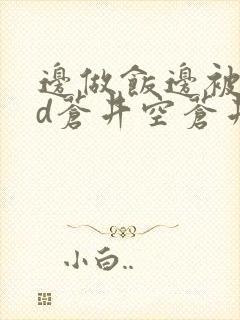 邊做飯邊被
d蒼井空蒼井
小白..